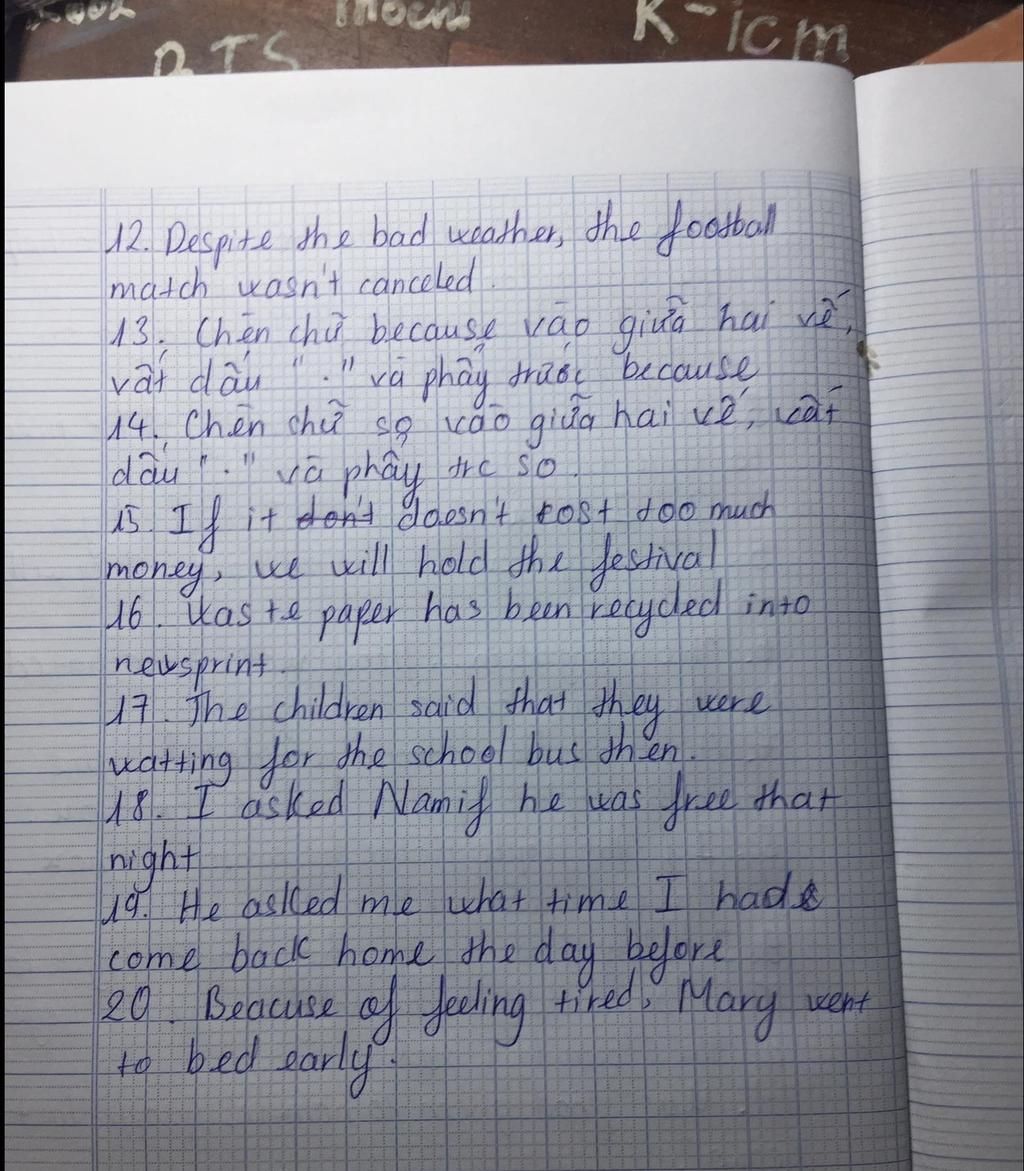 K-icm
12. Despite the bad weather, the football
match wasn't canceled.
13. Chèn chữ because vào giữa hai vế,
vất dấu "." và phẩy trước because
14. Chèn chữ so vào giữa hai vế, vất
dấu "." và phẩy trc so.
15. If it don't doesn't cost too much
money, we will hold the festival
16. Waste paper has been recycled into
newsprint.
17. The children said that they were
watting for the school bus then.
18. I asked Nam if he was free that
night
19. He asked me what time I had
come back home the day before
20. Beacuse of feeling tired, Mary went
to bed early.